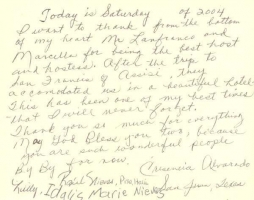 Today is Saturday of 2004
I want to thank from the bottom
of my heart Mr Lanfranco and
Marcella for being the best host
and hostess. After the trip to
San Francis of Assisi, they
accomodated us in a beautiful hotel
This has been one of my best times
that I will never forget.
Thank you so much for everything
May God Bless you two, because
you are such wonderful people
By By for now.
Alvarado
San Juan, Texas
Marie